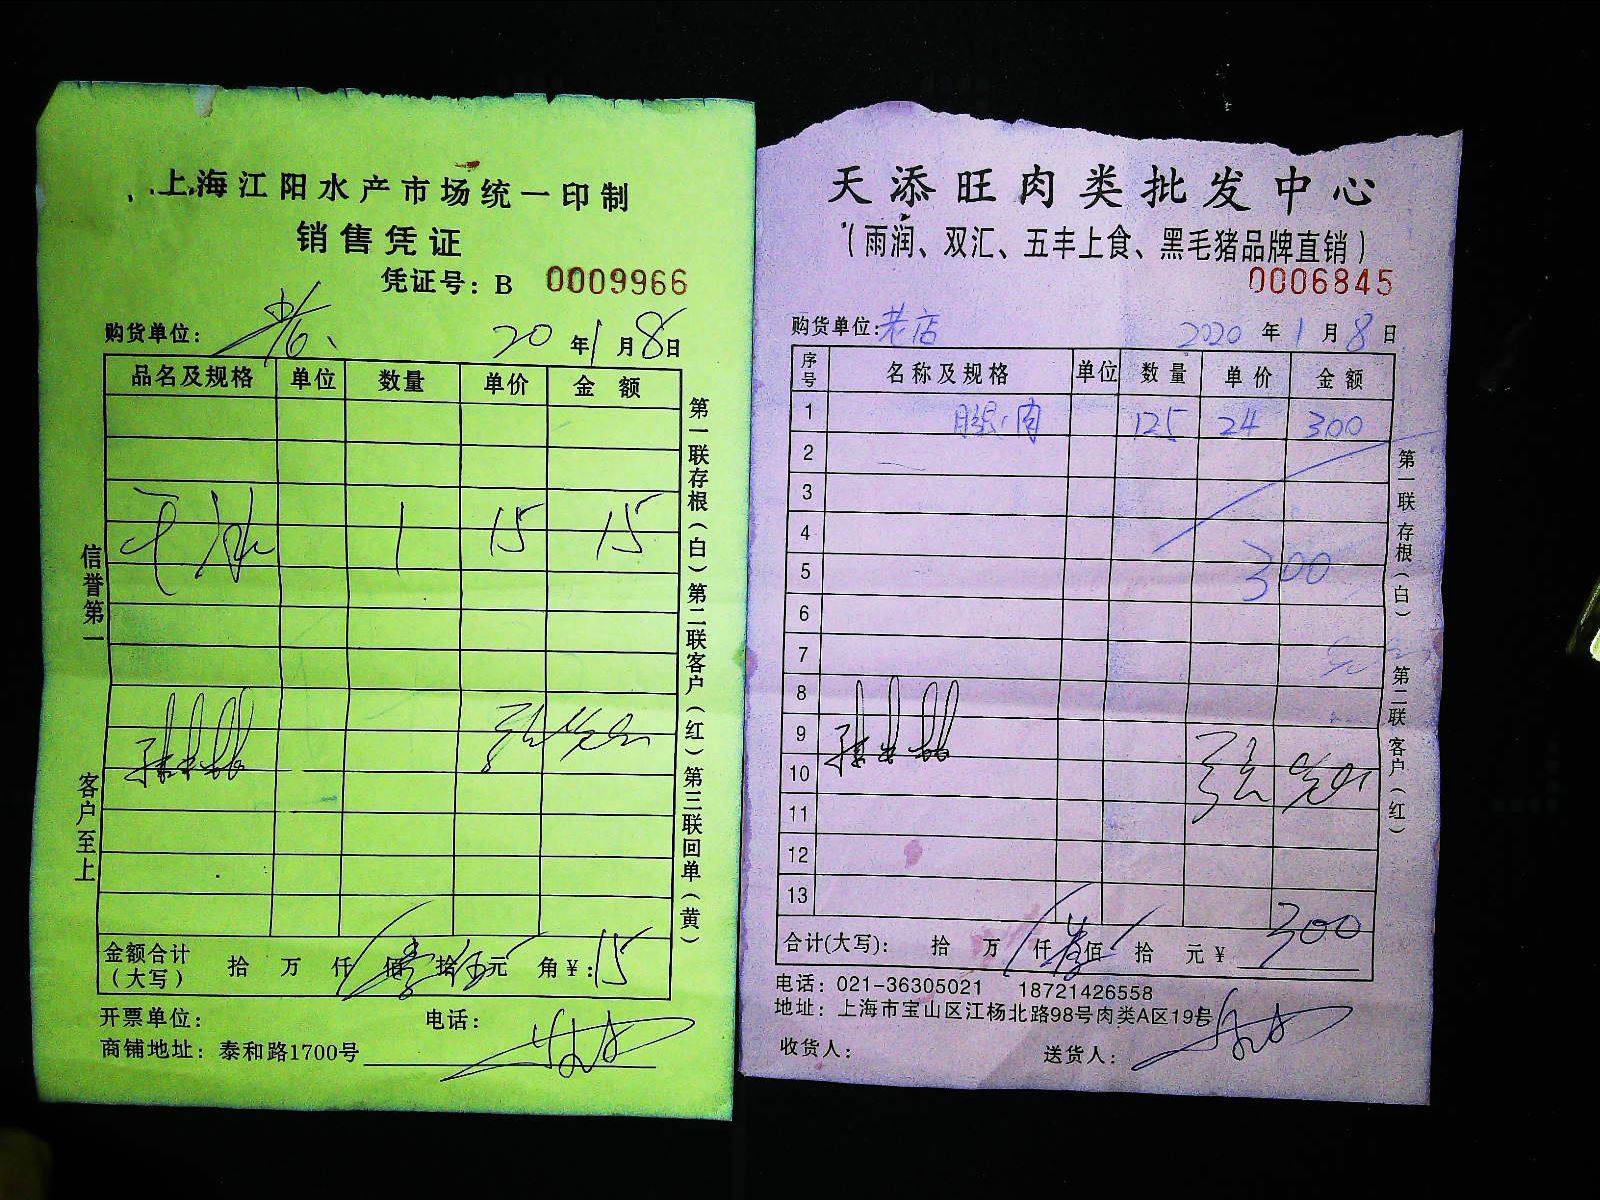 上海江阳水产市场统一印制
销售凭证
凭证号：B 0009966
购货单位： 20 年 1 月 8 日
品名及规格 单位 数量 单价 金额
1 15 15
信誉第一
客户至上
第一联存根（白）第二联客户（红）第三联回单（黄）
金额合计（大写） 拾 万 仟 佰 拾 元 角 ¥：15
开票单位： 电话：
商铺地址：泰和路1700号
天添旺肉类批发中心
（雨润、双汇、五丰上食、黑毛猪品牌直销）
0006845
购货单位：老店 2020 年 1 月 8 日
序号 名称及规格 单位 数量 单价 金额
1 腿肉 125 24 300
2
3
4
5 300
6
7
8
9
10
11
12
13
第一联 存根（白） 第二联 客户（红）
合计(大写)： 拾 万 仟 壹 佰 拾 元 ¥ 300
电话：021-36305021 18721426558
地址：上海市宝山区江杨北路98号肉类A区19号
收货人： 送货人：